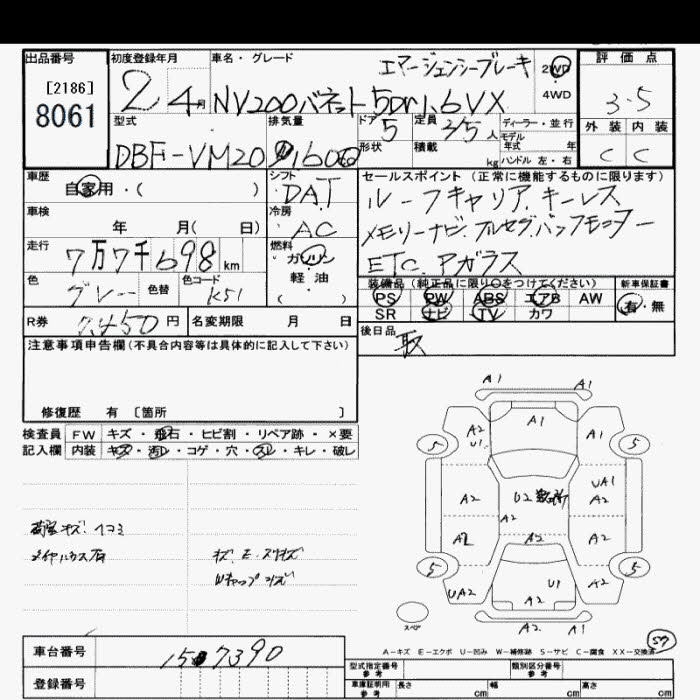 出品番号
[2186]
8061
初度登録年月
2 4月
車名・グレード
エマージェンシーブレーキ
NV200バネット5Dr1.6VX
2WD
4WD
評価点
3.5
外装 内装
C C
型式
DBF-VM20
排気量
1600
ドア 5
形状
定員 人
積載 kg
ディーラー・並行
モデル
年式 年
ハンドル 左・右
車歴
自家用・( )
シフト
DAT
セールスポイント (正常に機能するものに限ります)
ルーフキャリア.キーレス
メモリーナビ.フルセグ.バックモニター
ETC.アガラス
車検
年 月( 日)
冷房
AC
走行
7万7千698km
燃料
ガソリン
軽油
( )
色
グレー
色替
色コード
K51
装備品(純正品に限り○をつけてください)
PS PW ABS エアB AW
SR ナビ TV カワ
新車保証書
有・無
R券
7,450円
名変期限 月 日
後日品
取
注意事項申告欄(不具合内容等は具体的に記入して下さい)
修復歴 有 〔箇所 〕
検査員 FW キズ・飛石・ヒビ割・リペア跡・×要
記入欄 内装 キズ・汚レ・コゲ・穴・スレ・キレ・破レ
荷室キズ!ヘコミ
A1 A1
A2 U1 A1 A1
5 5
A2 U2 UA1 A2
A2
A2 A2 A2
5 5
UA2 U1 A2
A2
スペア
A2 A1
A-キズ E-エクボ U-凹み W-補修跡 S-サビ C-腐食 XX-交換済
車台番号
登録番号
型式指定番号
参考
類別区分番号
参考
車庫証明用
参考
長さ cm 幅 cm 高さ cm